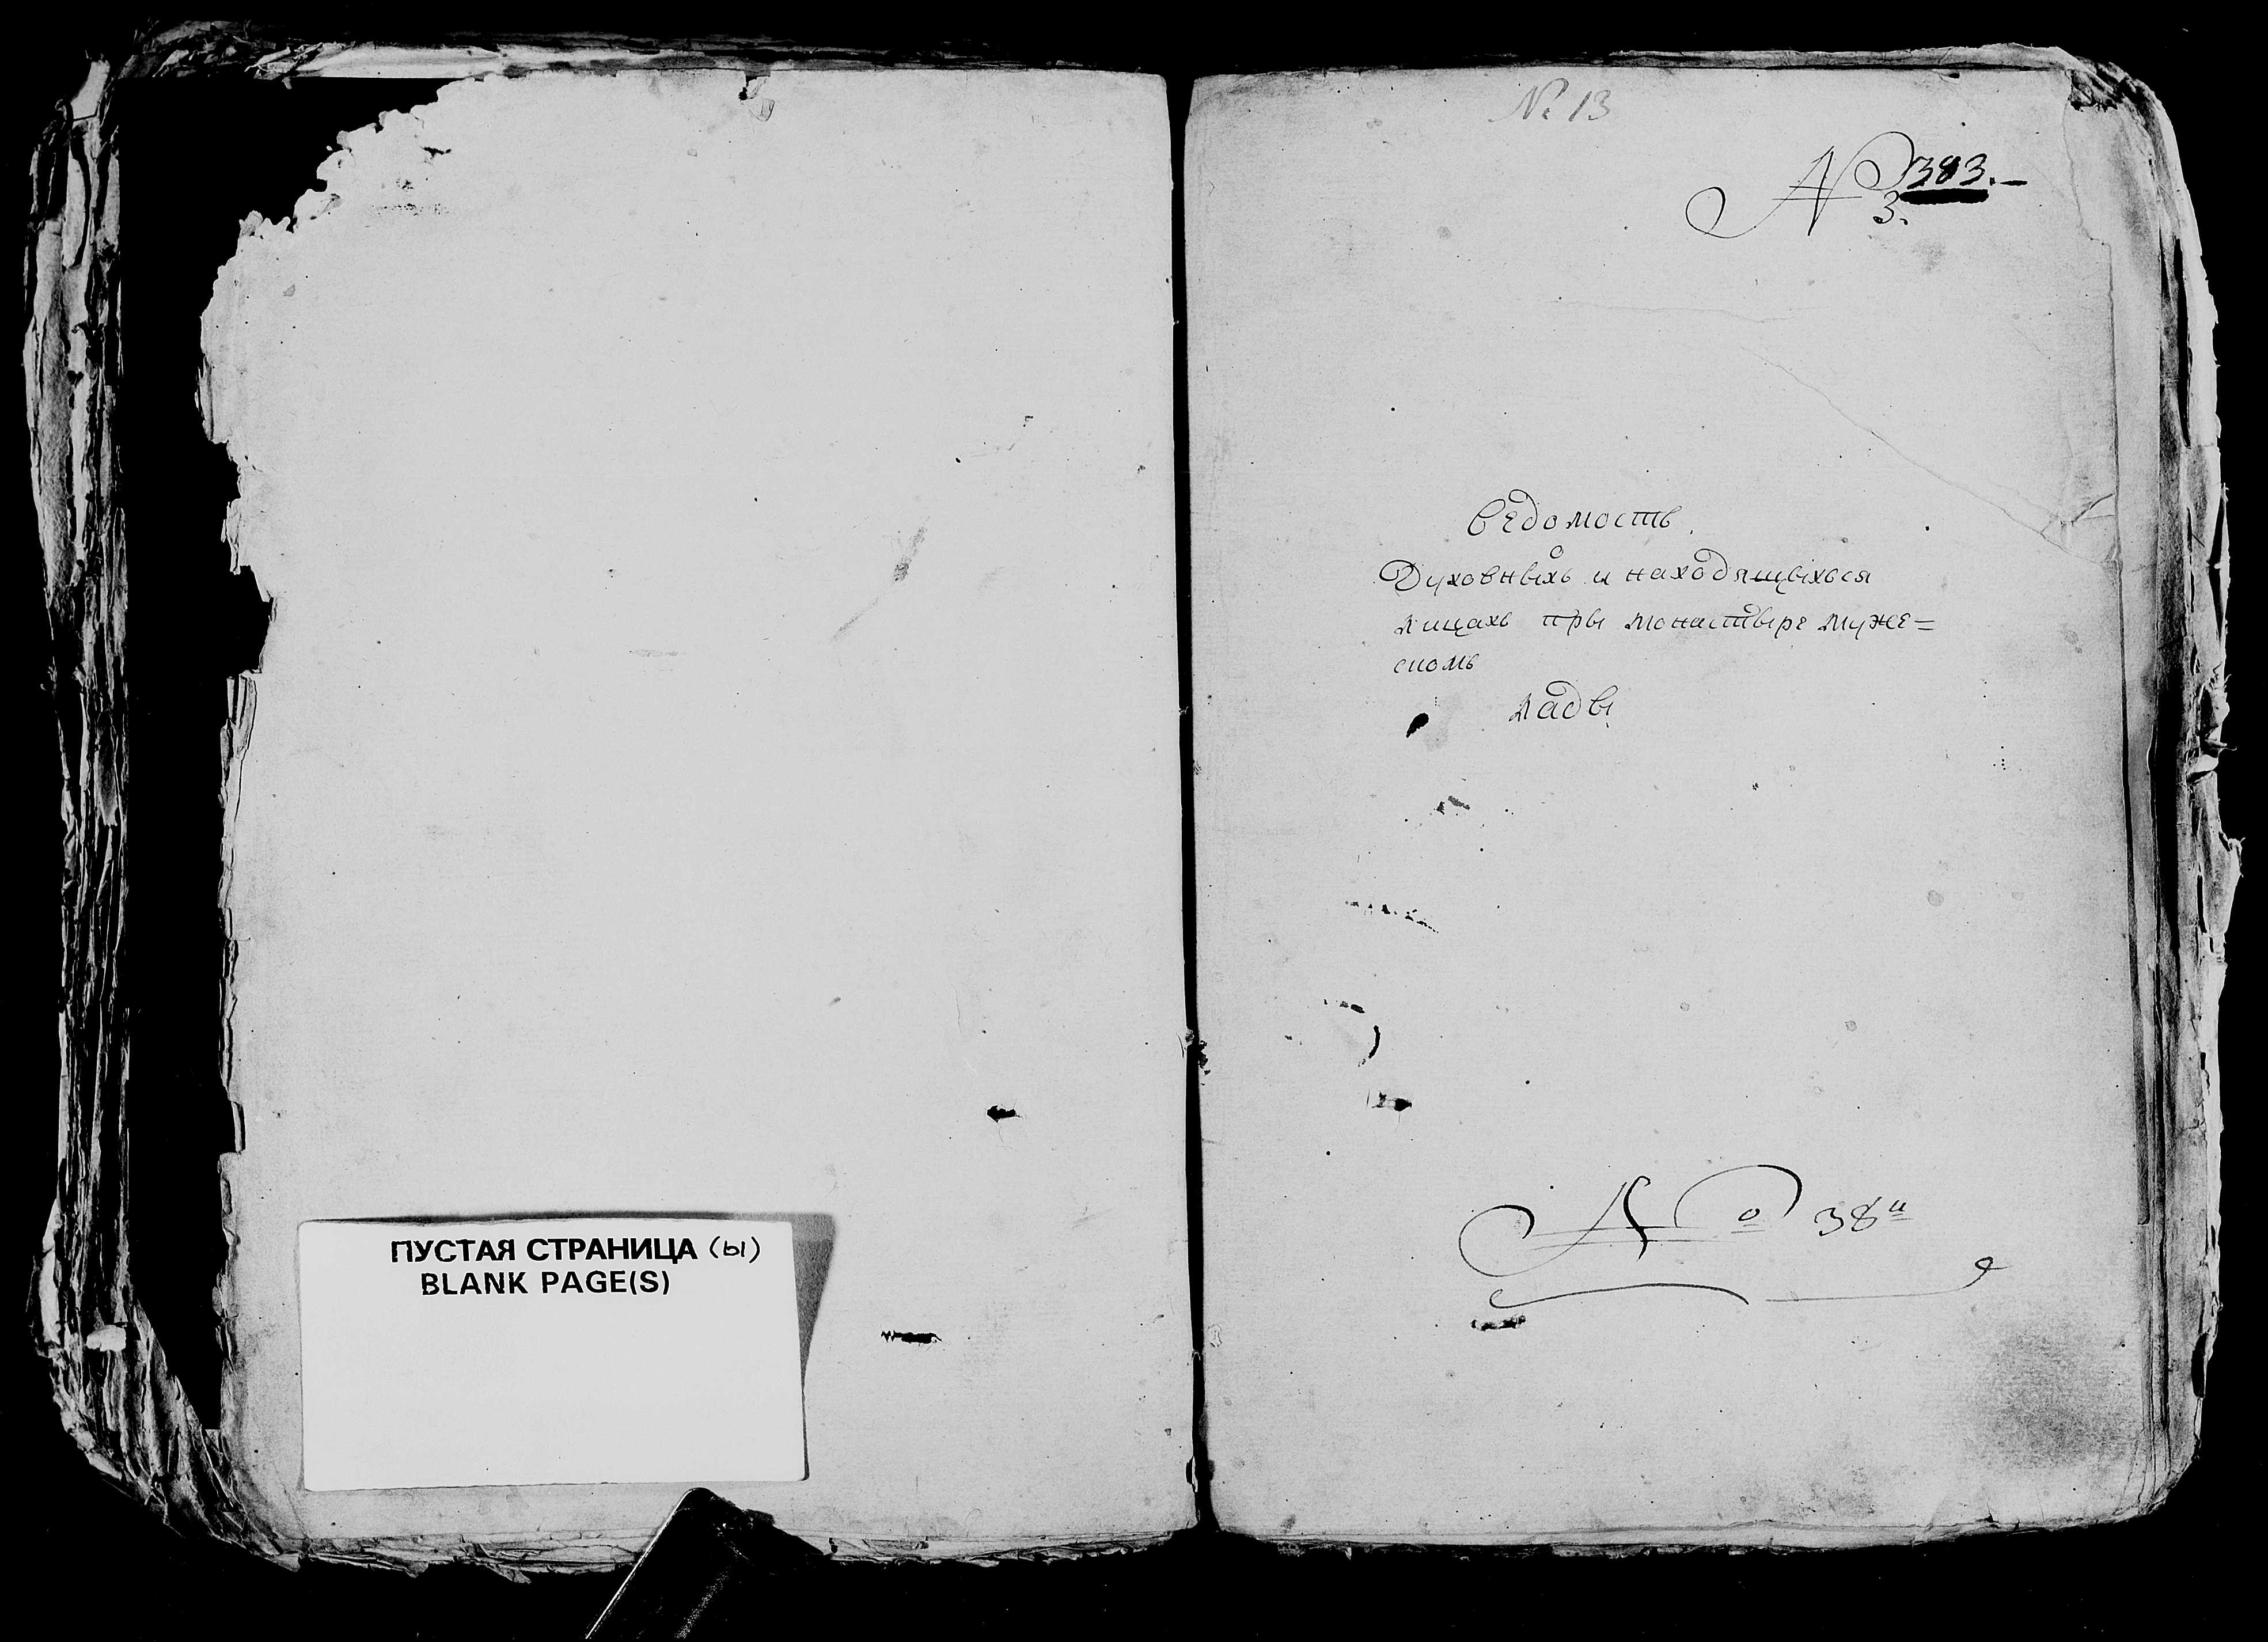 ПУСТАЯ СТРАНИЦА (ы)
BLANK PAGE(S)
№ 13
№ 383.
3.
Ведомость
о
Духовныхъ и находящыхься
лицахъ пры монастыре муже=
скомъ
Лады
№ 38й